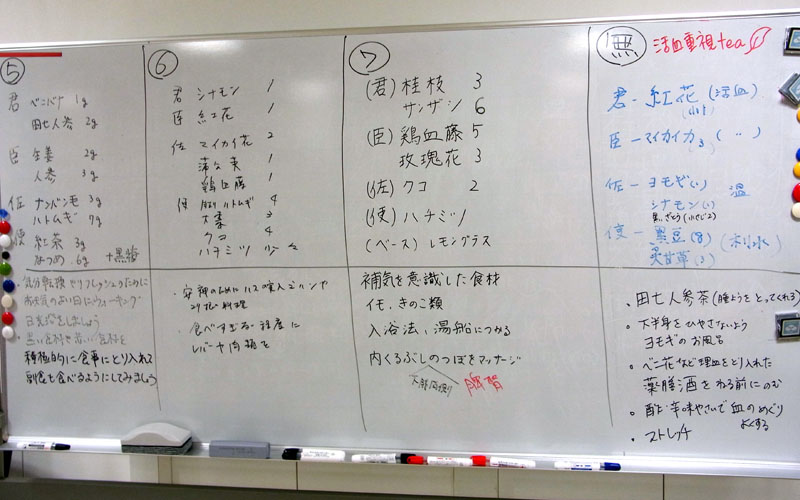 ⑤
君 ベニバナ 1g
田七人参 2g
臣 生姜 2g
人参 3g
佐 ナンバン毛 3g
ハトムギ 7g
使 紅茶 3g
なつめ 6g +黒糖
気分転換やリフレッシュのために
お天気のよい日にウォーキング
日光浴をしましょう
・黒い食材や赤い食材を
積極的に食事にとり入れて
副食も食べるようにしてみましょう
⑥
君 シナモン 1
臣 紅花 1
佐 マイカイ花 2
蒲公英 1
鶏血藤 1
使 ハトムギ 4
大棗 3
クコ 4
ハチミツ 少々
・安神のために ハスの実入り
・食べすぎない程度に
レバーや肉類を
⑦
(君) 桂枝 3
サンザシ 6
(臣) 鶏血藤 5
玫瑰花 3
(佐) クコ 2
(使) ハチミツ
(ベース) レモングラス
補気を意識した食材
イモ、きのこ類
入浴法、湯船につかる
内くるぶしのつぼをマッサージ
無 活血重視tea
君-紅花 (活血)
臣-マイカイカ 3 (〃)
佐-ヨモギ(1) 温
シナモン(1)
黒ざとう(小さじ2)
使-黒豆(8) (利水)
炙甘草(3)
・田七人参茶 (腫ようをとってくれる)
・下半身をひやさないよう
ヨモギのお風呂
・ベニ花など理血をとり入れた
薬膳酒をねる前にのむ
・酢、辛味やさいで血のめぐり
よくする
・ストレッチ